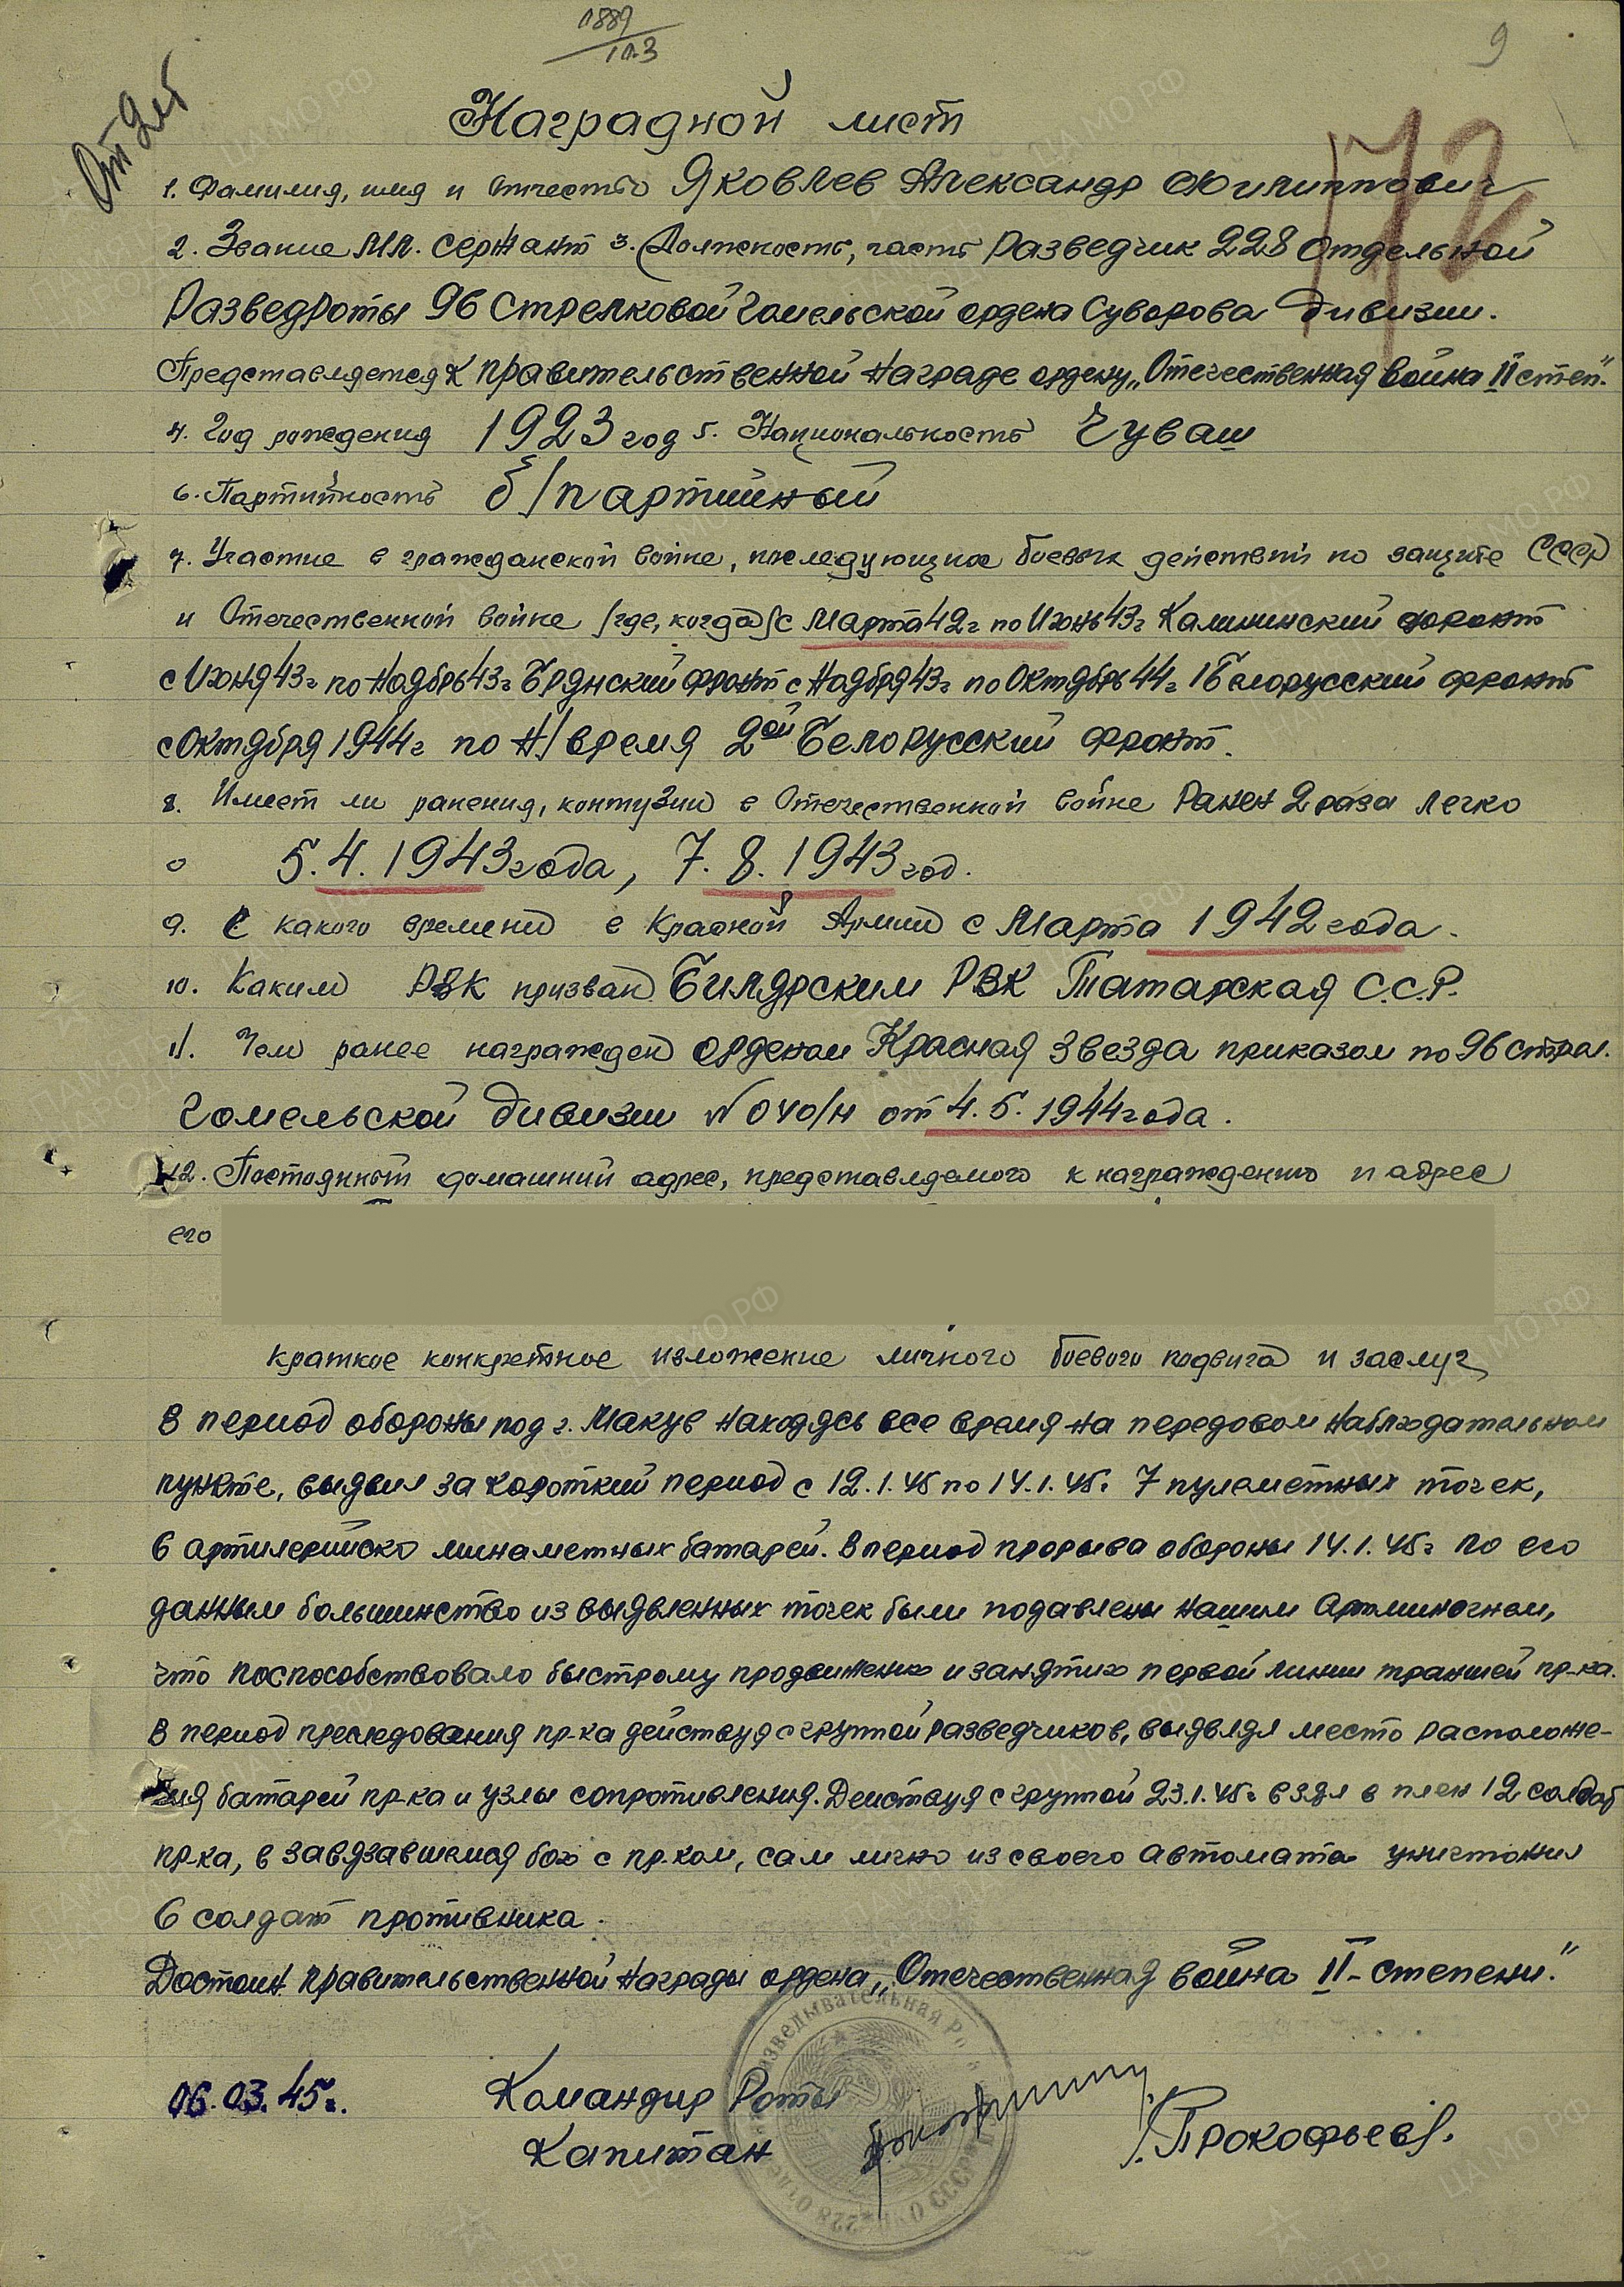 0889
10.3
9
От 2 ст
172
Наградной лист
1. Фамилия, имя и отчество Яковлев Александр Филиппович
2. Звание Мл. сержант 3. Должность, часть Разведчик 228 Отдельной
Разведроты 96 Стрелковой Гомельской ордена Суворова дивизии.
Представляется к правительственной награде ордену „Отечественная война II степ."
4. Год рождения 1923 год 5. Национальность Чуваш
6. Партийность б/партийный
7. Участие в гражданской войне, последующих боевых действий по защите СССР
и Отечественной войне /где, когда/ с Марта 42г по Июнь 43г Калининский фронт
с Июня 43г по Ноябрь 43г Брянский фронт с Ноября 43г по Октябрь 44г 1 Белорусский фронт
с Октября 1944г по н/время 2ой Белорусский фронт.
8. Имеет ли ранения, контузии в Отечественной войне Ранен 2 раза легко
5.4.1943 года, 7.8.1943 год.
9. С какого времени в Красной Армии с Марта 1942 года.
10. Каким РВК призван Билярским РВК Татарская С.С.Р.
11. Чем ранее награжден орденом Красная Звезда приказом по 96 стрел.
Гомельской дивизии № 040/н от 4.5.1944 года.
12. Постоянный домашний адрес, представляемого к награждению и адрес
его
Краткое конкретное изложение личного боевого подвига и заслуг
В период обороны под г. Макув находясь все время на передовом наблюдательном
пункте, выявил за короткий период с 12.1.45 по 14.1.45г 7 пулеметных точек,
6 артилерийско минаметных батарей. В период прорыва обороны 14.1.45г по его
данным большинство из выявленных точек были подавлены нашим артминогнем,
что поспособствовало быстрому продвижению и занятию первой линии траншей пр-ка.
В период преследования пр-ка действуя с группой разведчиков, выявлял место расположе-
ния батарей пр-ка и узлы сопротивления. Действуя с группой 23.1.45г взял в плен 12 солдат
пр-ка, в завязавшемся бою с пр-ком, сам лично из своего автомата уничтожил
6 солдат противника.
Достоин правительственной награды ордена „Отечественная война II-степени."
06.03.45г. Командир Роты
Капитан /Прокофьев/.